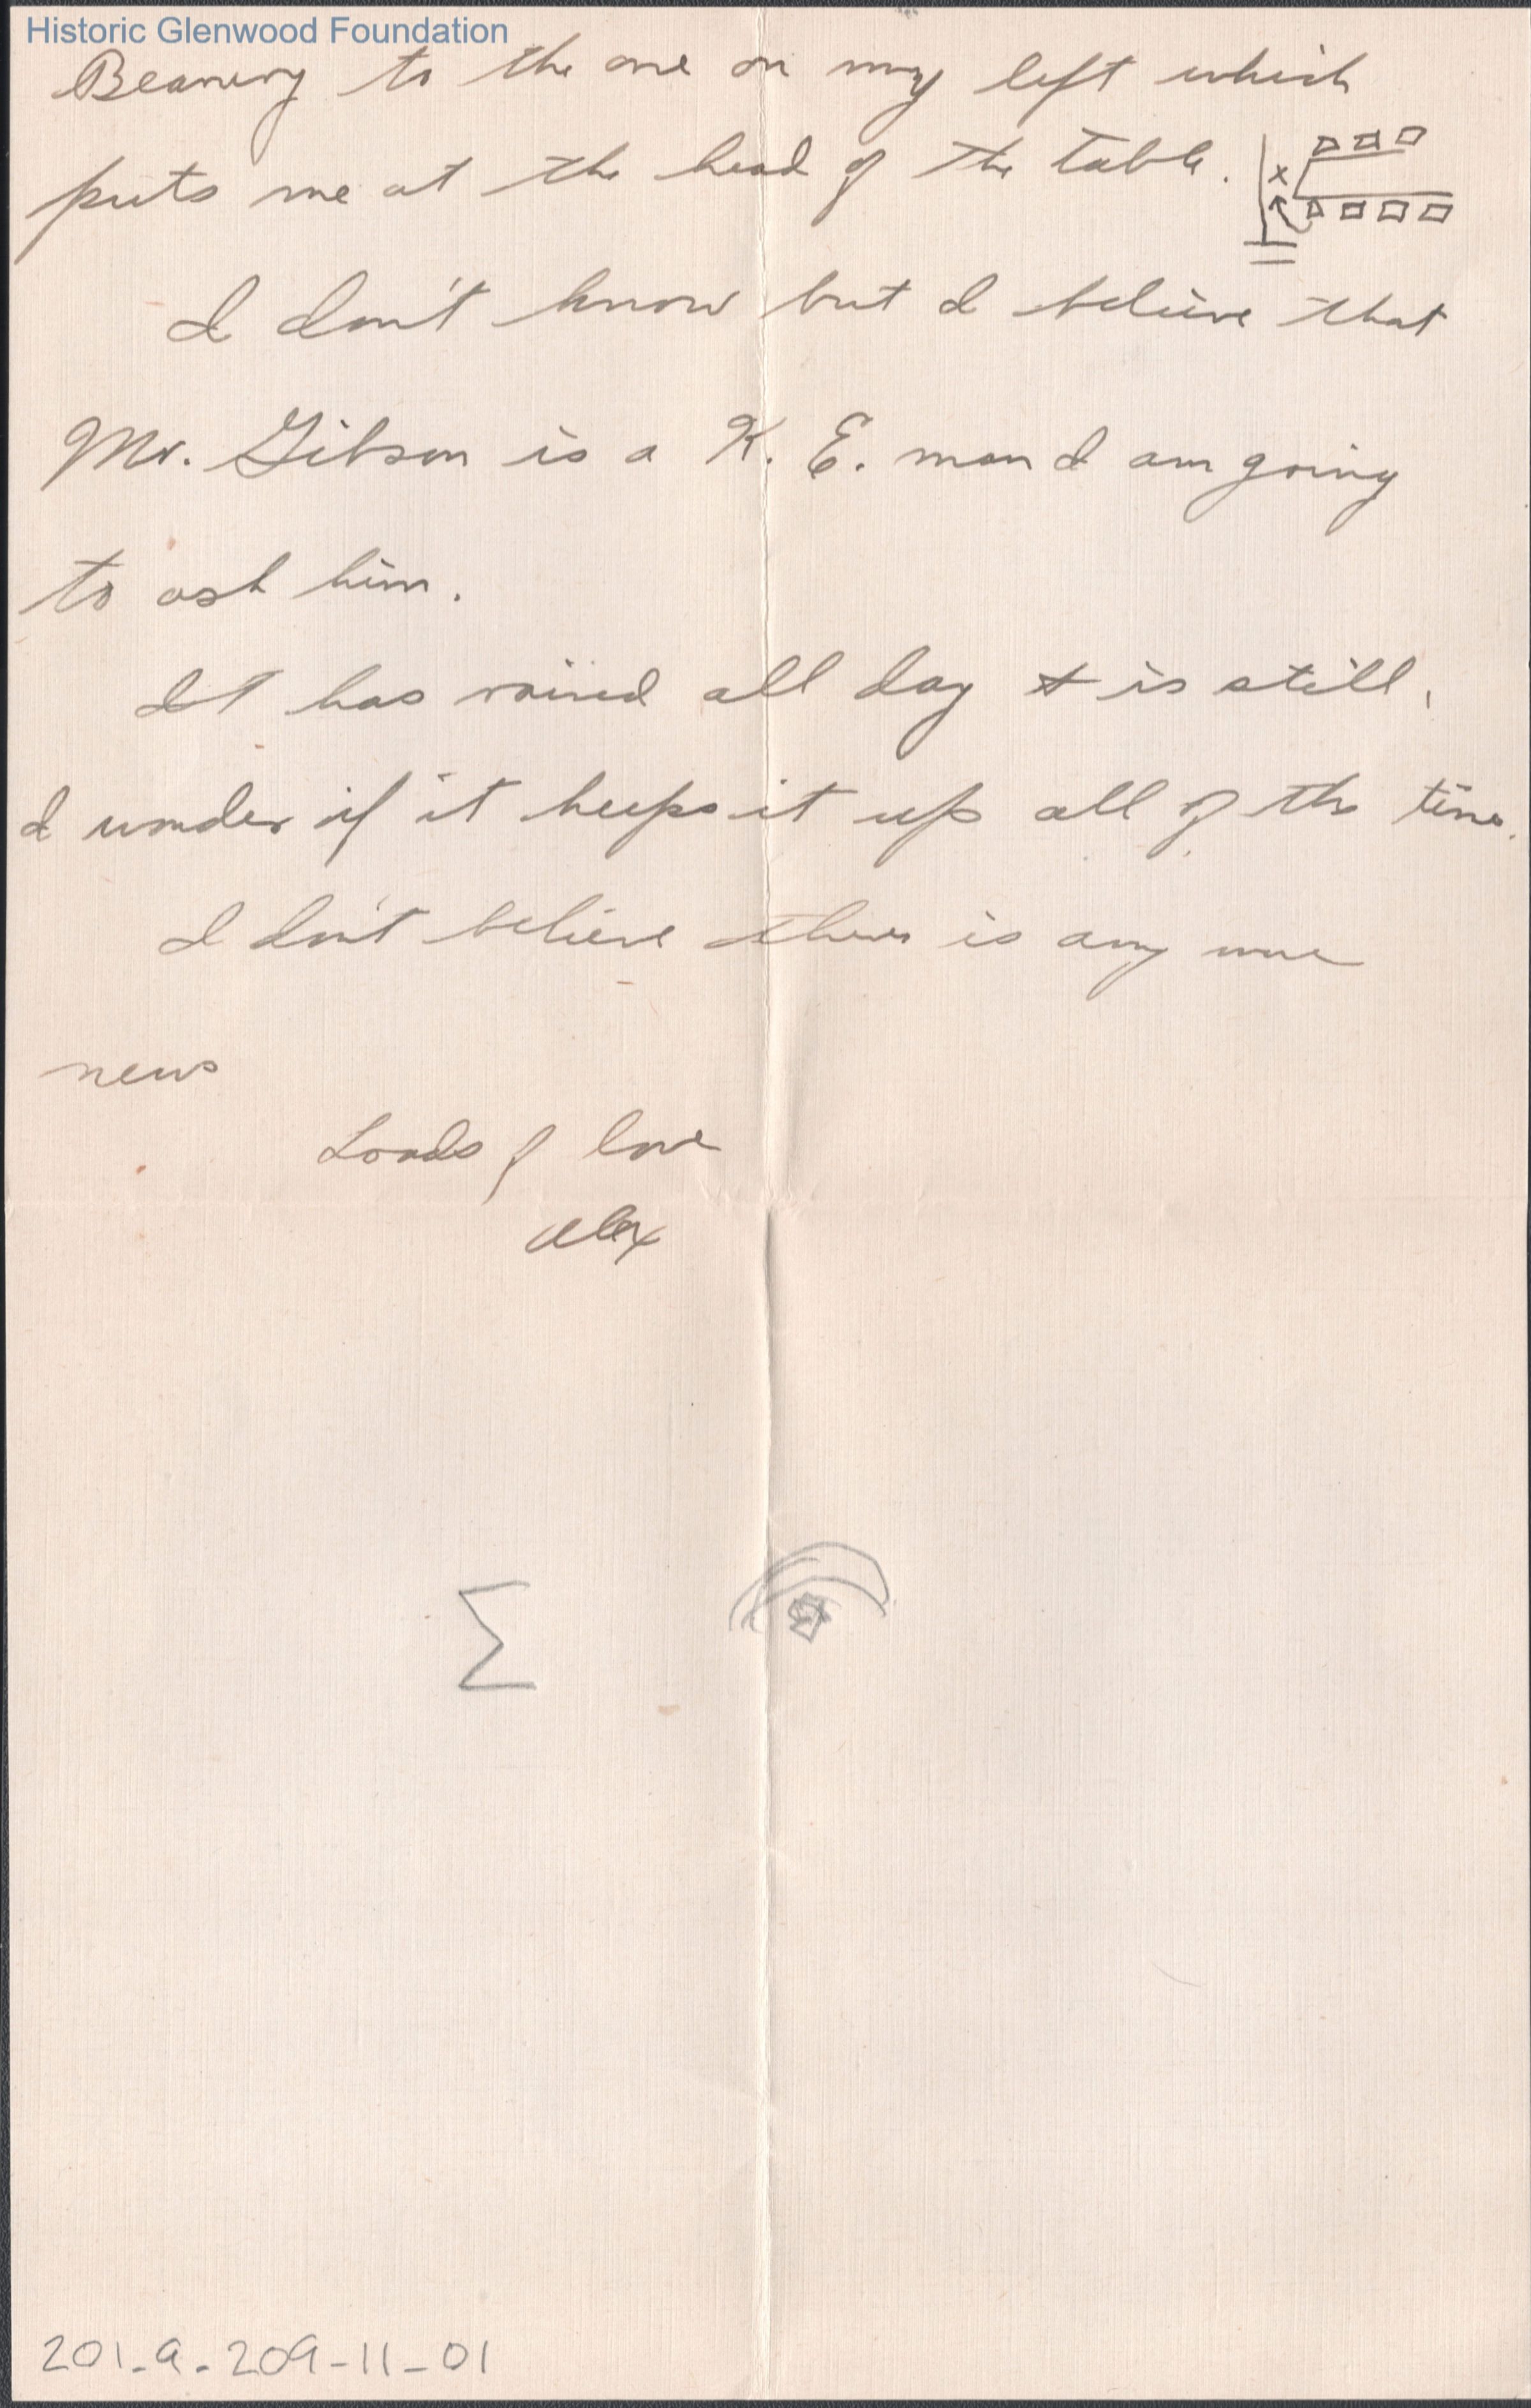 Historic Glenwood Foundation
Beanery to the one on my left which
puts me at the head of the table.
x
I don't know but I believe that
Mr. Gibson is a K. E. man I am going
to ask him.
It has rained all day & is still.
I wonder if it keeps it up all of the time.
I don't believe there is any more
news
Loads of love
Alex
Σ
201-9-209-11-01